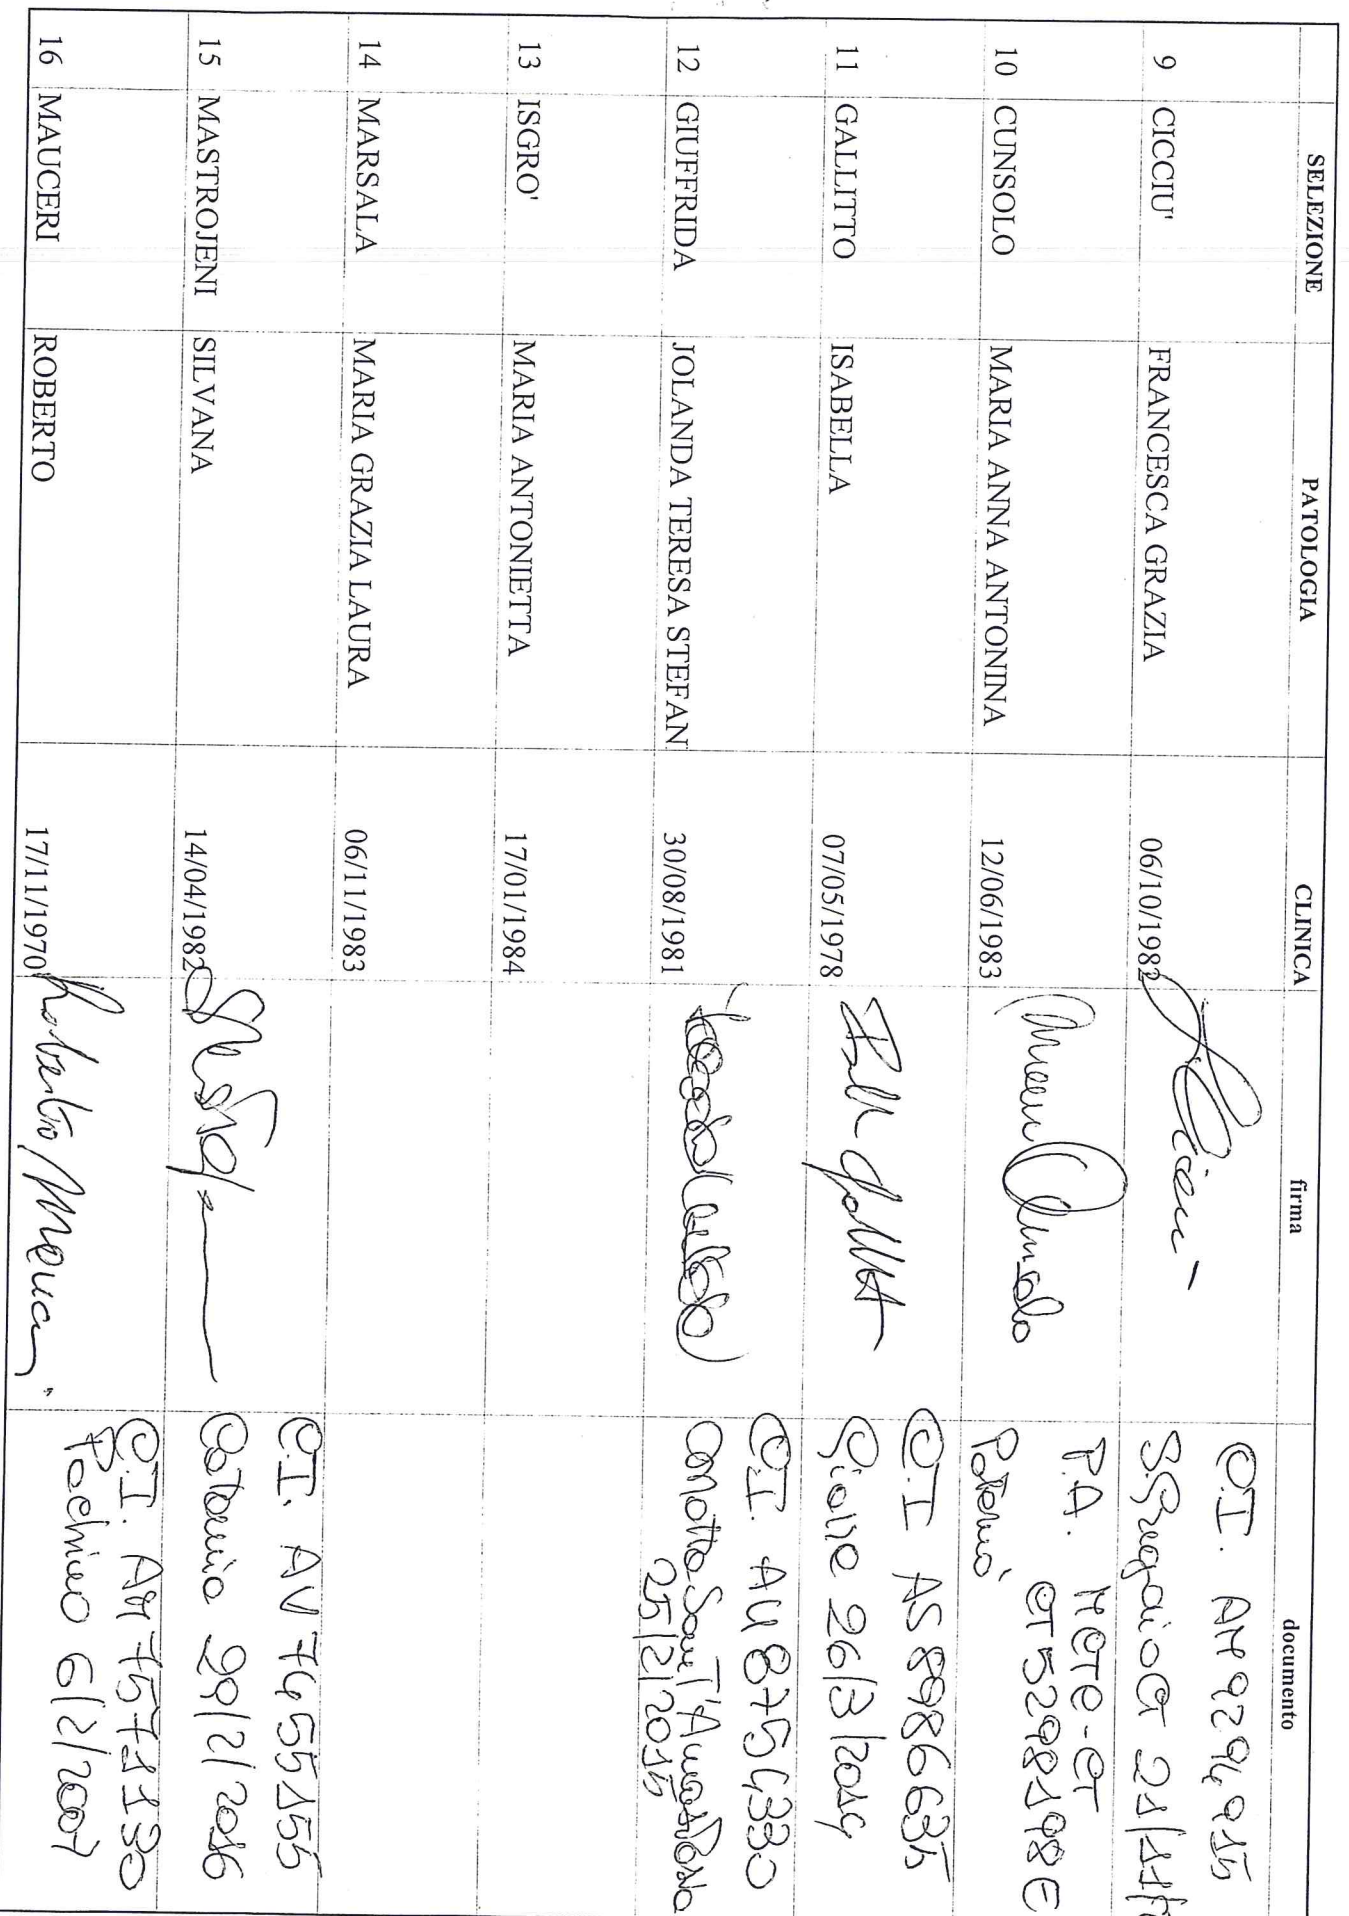 SELEZIONE PATOLOGIA CLINICA firma documento
9 CICCIU' FRANCESCA GRAZIA 06/10/1982
C.I. AM9294915
S.Gregorio CT 21/11/
10 CUNSOLO MARIA ANNA ANTONINA 12/06/1983
P.A. MCTC-CT
CT5298198E
Paternò
11 GALLITTO ISABELLA 07/05/1978
C.I AS8986635
Giarre 26/3/2014
12 GIUFFRIDA JOLANDA TERESA STEFAN 30/08/1981
C.I. AU8754330
Motta Sant'Anastasia
25/2/2015
13 ISGRO' MARIA ANTONIETTA 17/01/1984
14 MARSALA MARIA GRAZIA LAURA 06/11/1983
15 MASTROJENI SILVANA 14/04/1982
C.I. AV7455155
Catania 29/2/2016
16 MAUCERI ROBERTO 17/11/1970 Roberto Mauceri
C.I. AM7571130
Pachino 6/2/2007